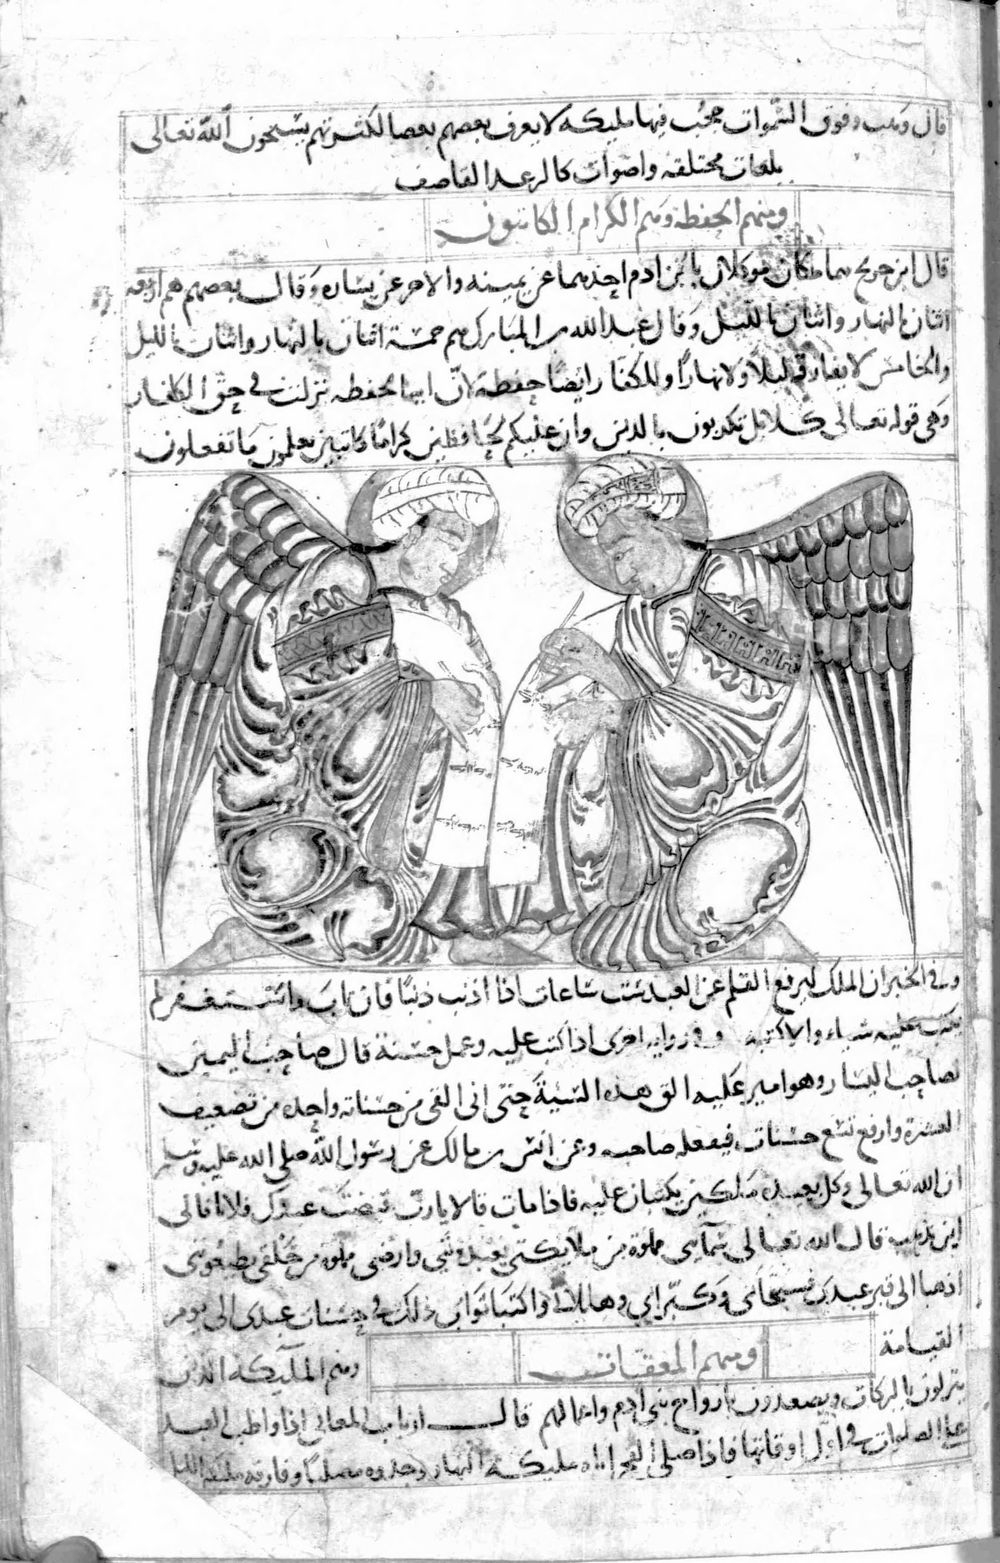 قال وهب وفوق السموات حجب فيها مليكة لا يعرف بعضهم بعضا لكثرتهم يسبحون الله تعالى
بلغات مختلفة واصوات كالرعد القاصف
ومنهم الحفظة وهم الكرام الكاتبون
قال ابن جريج هما ملكان موكلان بابن ادم احدهما عن يمينه والاخر عن يساره وقال بعضهم هم اربعة
اثنان بالنهار واثنان بالليل وقال عبد الله بن المبارك هم خمسة اثنان بالنهار واثنان بالليل
والخامس لا يفارقه ليلا ولا نهارا وللكفار ايضا حفظة لان اية الحفظه نزلت في حق الكفار
وهي قوله تعالى كلا بل تكذبون بالدين وان عليكم لحافظين كراما كاتبين يعلمون ما تفعلون
وفي الخبر ان الملك ليرفع القلم عن العبد ست ساعات اذا اذنب ذنبا فان تاب واستغفر لم
يكتب عليه شياء والا كتبه وفي رواية اخرى اذا كتب عليه وعمل حسنة قال صاحب اليمين
لصاحب اليسار وهو امير عليه الق هذه السيئة حتى انى القى من حسناته واحدة من تضعيف
العشرة وارفع تسع حسنات فيفعله صاحبه وعن انس بن مالك عن رسول الله صلى الله عليه وسلم
ان الله تعالى وكل بعبده ملكين يكتبان عليه فاذا مات قالا يا رب قبضت عبدك فلانا فالى
اين نذهب قال الله تعالى سمآيى مملوة من ملايكتى يعبدونني وارضى مملوة من خلقى يطيعوننى
اذهبا الى قبر عبدى فسبحانى وكبرانى وهللانى واكتبا ثواب ذلك في حسنات عبدى الى يوم
القيامة
ومنهم المعقبات
ومنهم الملآيكة الذين
ينزلون بالبركات ويصعدون بارواح بنى ادم واعمالهم قال ارباب المعانى اذا واظب العبد
على الصلوات في اول اوقاتها فاذا صلى الفجر اتاه مليكة النهار وجدوه مصليا وفارقه مليكة الليل